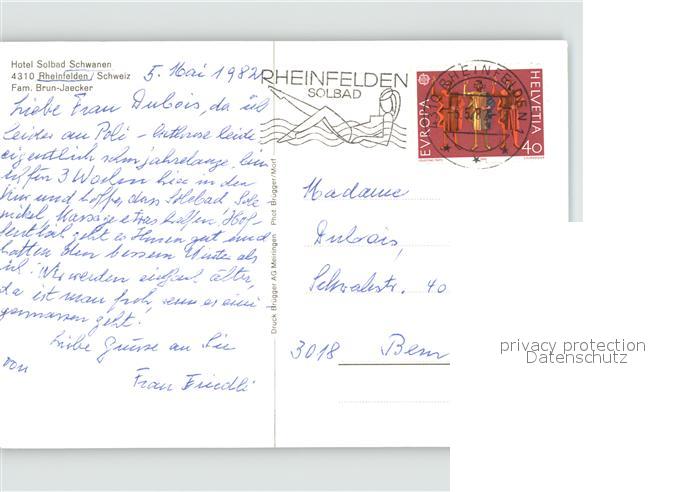 Hotel Solbad Schwanen
4310 Rheinfelden / Schweiz
Fam. Brun-Jaecker
5. Mai 1982
Liebe Frau Dubois, da ich
leider an Poli-Arthrose leide
eigentlich schon jahrelange, bin
3 Wochen hier in der
Kur und hoffe, dass Solebad, Sole
wickel, Massage etwas helfen. Hof-
fentlich geht es Ihnen gut und
hatten den bessern Winter als
ich. Wir werden einfach älter,
da ist man froh, wenn es eini
germassen geht.
Liebe Grüsse an Sie
von
Frau Friedli
Druck Brügger AG Meiringen Phot Brügger/Morf
RHEINFELDEN
SOLBAD
RHEINFELDEN
EVROPA
HELVETIA
40
Madame
Dubois,
40
3018 Bern
privacy protection
Datenschutz